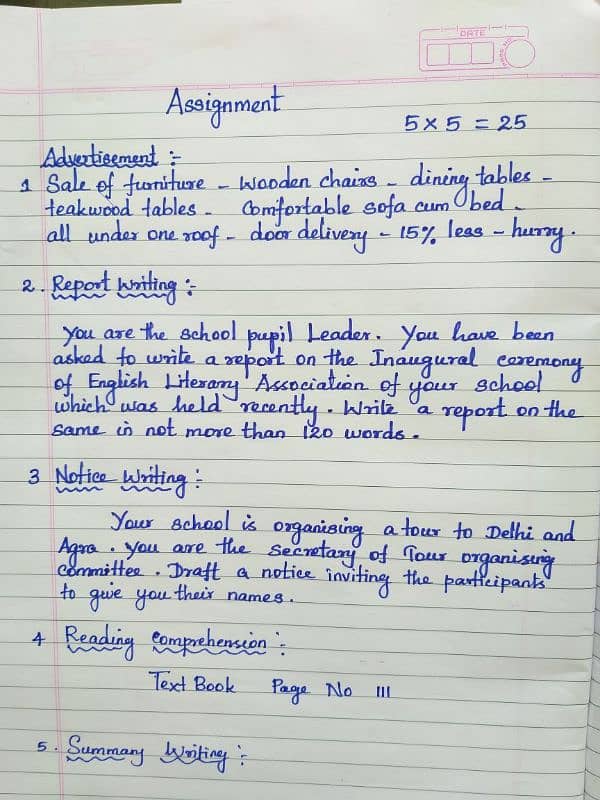 DATE
Assignment
5 × 5 = 25
Advertisement :-
1 Sale of furniture - wooden chairs - dining tables -
teakwood tables - comfortable sofa cum bed -
all under one roof - door delivery - 15% less - hurry.
2. Report Writing :-
You are the school pupil Leader. You have been
asked to write a report on the Inaugural ceremony
of English Literary Association of your school
which was held recently. Write a report on the
same in not more than 120 words.
3 Notice Writing :-
Your school is organising a tour to Delhi and
Agra. You are the secretary of Tour organising
committee. Draft a notice inviting the participants
to give you their names.
4 Reading Comprehension :-
Text Book Page No 111
5. Summary Writing :-